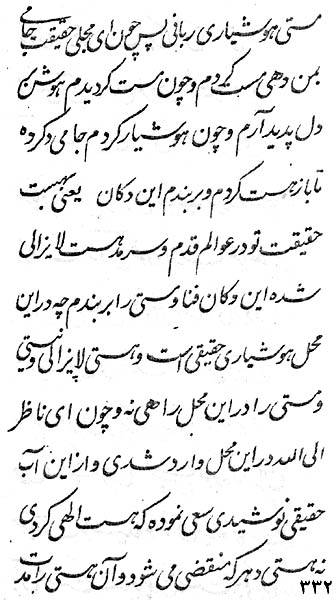 مستی هوشیاری ربانی پس چون ای مجلی حقیقت جامی
بمن دهی مست گردم و چون مست گردیدم هوش
دل پدید آرم و چون هوشیار گردم جامی دگر ده
تا باز مست گردم و بربندم این دکان یعنی
حقیقت تو در عوالم قدم و سرمد هست لایزالی
شده این دکان فنا و مستی را بربندم چه در این
محل هوشیاری حقیقی است و هستی لایزالی و نیستی
و مستی را در این محل راهی نه و چون ای ناظر
الی الله در این محل وارد شدی و از این آب
حقیقی نوشیدی سعی نموده که هست الهی گردی
نه هستی دهر که منقضی می شود و آن هستی را مدت
۳۳۲